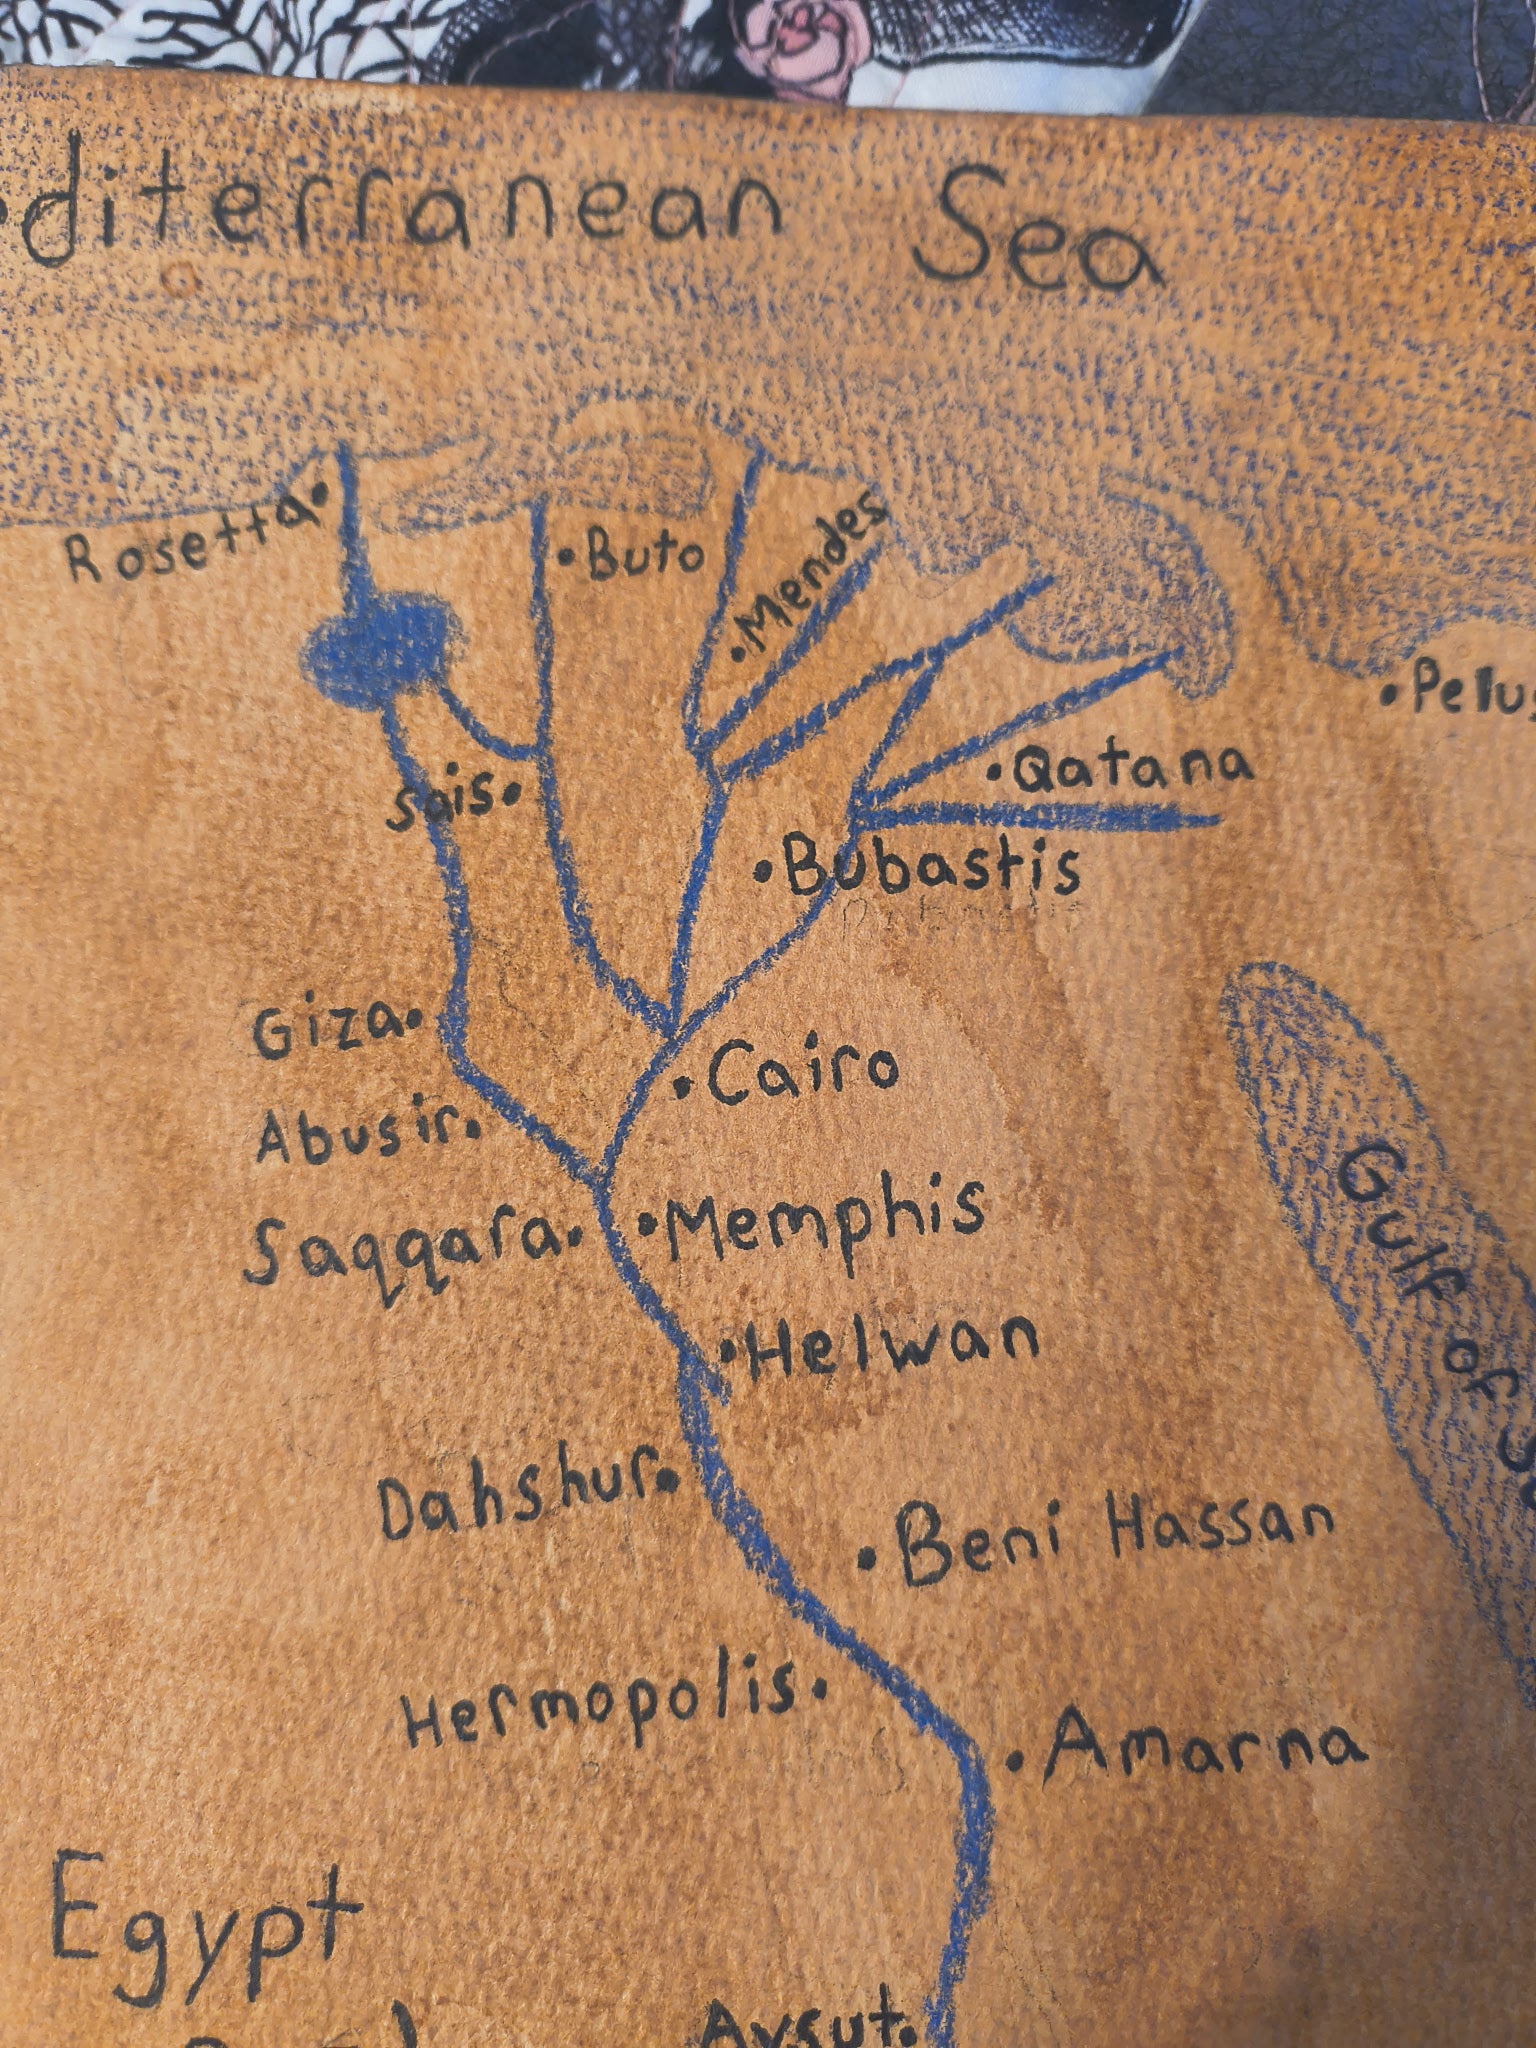 diterranean Sea
Rosetta
Buto
Mendes
Sais
Qatana
Bubastis
Giza
Cairo
Abusir
Saqqara
Memphis
Helwan
Gulf of
Dahshur
Beni Hassan
Hermopolis
Amarna
Egypt
Aysut